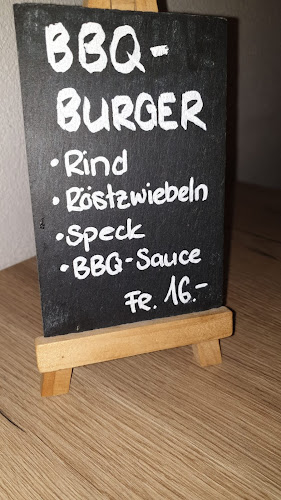 BBQ-
BURGER
• Rind
• Röstzwiebeln
• Speck
• BBQ-Sauce
Fr. 16.-